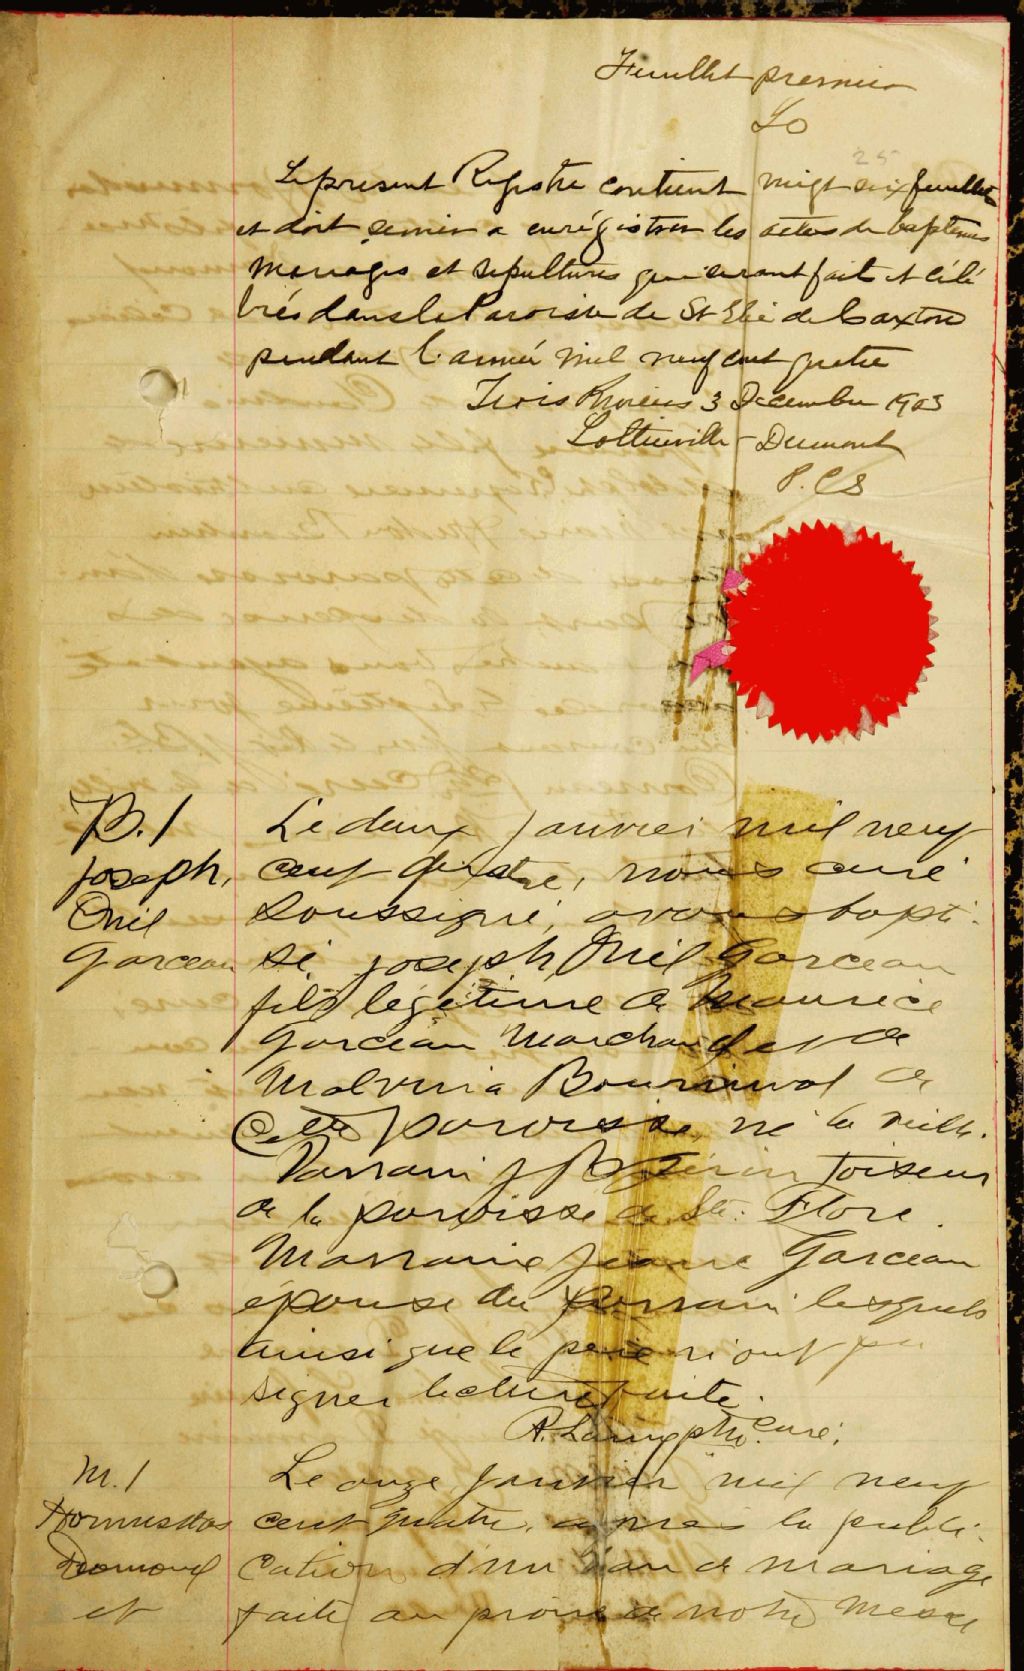 Feuillet premier
LD
25
Le present Registre contient vingt six feuillets
et doit servir a enrégistrer les actes de baptemes
mariages et sepultures qui seront fait et célé
brés dans la Paroisse de St Elie de Caxton
pendant l'année mil neuf cent quatre
Trois Rivieres 3 Decembre 1903
Lottinville - Dumont
P.C.S
B. 1
Joseph,
Onil
Garceau
Le deux janvier mil neuf
cent quatre, nous curé
soussigné, avons bapti-
sé joseph Onil Garceau
fils légitime de Maurice
Garceau Marchand et de
Malvina Bournival de
cette paroisse, né la veille.
Parrain Gérin Toiseur
de la paroisse de Ste. Flore.
Marraine Garceau
épouse du parrain lesquels
ainsi que le père n'ont pu
signer lecture faite.
curé.
M. 1
Hormisdas
et
Le onze janvier mil neuf
cent quatre, après la publi-
cation d'un ban de mariage
faite au prone de notre Messe